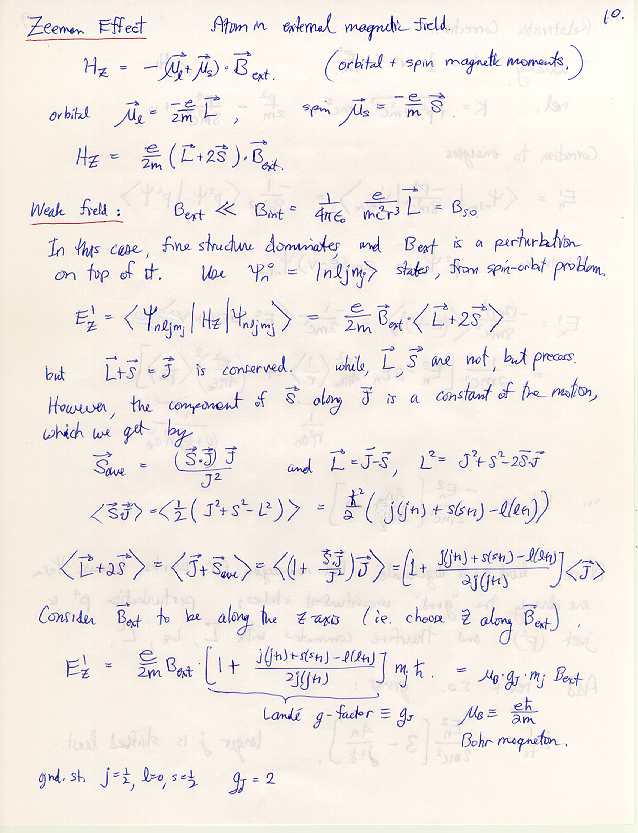 10.
Zeeman Effect Atom in external magnetic field.
H_Z = -(μ⃗_l + μ⃗_s)·B⃗_ext. (orbital + spin magnetic moments.)
orbital μ⃗_l = -e/2m L⃗, spin μ⃗_s = -e/m S⃗.
H_Z = e/2m (L⃗+2S⃗)·B⃗_ext.
Weak field: B_ext << B_int = 1/4πε₀ e/mc²r³ L⃗ = B_so
In this case, fine structure dominates and B_ext is a perturbation
on top of it. Use Ψ_n° = |nljm_j> states, from spin-orbit problem.
E¹_Z = <Ψ_nljm_j|H_Z|Ψ_nljm_j> = e/2m B⃗_ext·<L⃗+2S⃗>
but L⃗+S⃗ = J⃗ is conserved. while, L⃗, S⃗ are not, but precess.
However, the component of S⃗ along J⃗ is a constant of the motion,
which we get by
S⃗_ave = (S⃗·J⃗)J⃗/J² and L⃗ = J⃗-S⃗, L² = J²+S²-2S⃗·J⃗
<S⃗·J⃗> = <½(J²+S²-L²)> = ħ²/2 (j(j+1) + s(s+1) - l(l+1))
<L⃗+2S⃗> = <J⃗+S⃗_ave> = <(1+ S⃗·J⃗/J²)J⃗> = [1 + j(j+1)+s(s+1)-l(l+1)/2j(j+1)]<J⃗>
Consider B⃗_ext to be along the z-axis (ie. choose z along B⃗_ext).
E¹_Z = e/2m B_ext·[1 + j(j+1)+s(s+1)-l(l+1)/2j(j+1)] m_j ħ. = μ_B·g_J·m_j B_ext
Landé g-factor ≡ g_J μ_B ≡ eħ/2m
Bohr magneton.
gnd. st. j=½, l=0, s=½ g_J = 2